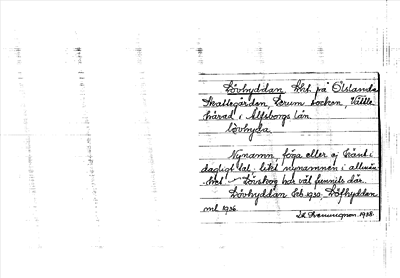 Lövhyddan Lht. på Ölslanda
Skattegården, Lerum socken, Vättle
härad i Älfsborgs län.
lövhyda
Nynamn, föga eller ej känt i
dagligt tal, likt nynamnen i allmän-
het. Lövskog har väl funnits där.
Lövhyddan Pb 1930, Löfhyddan
ml 1936.
1938.